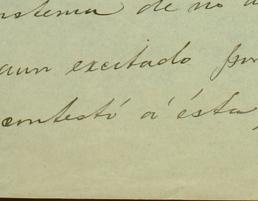 istema de no
aun excitado
contestó á ésta